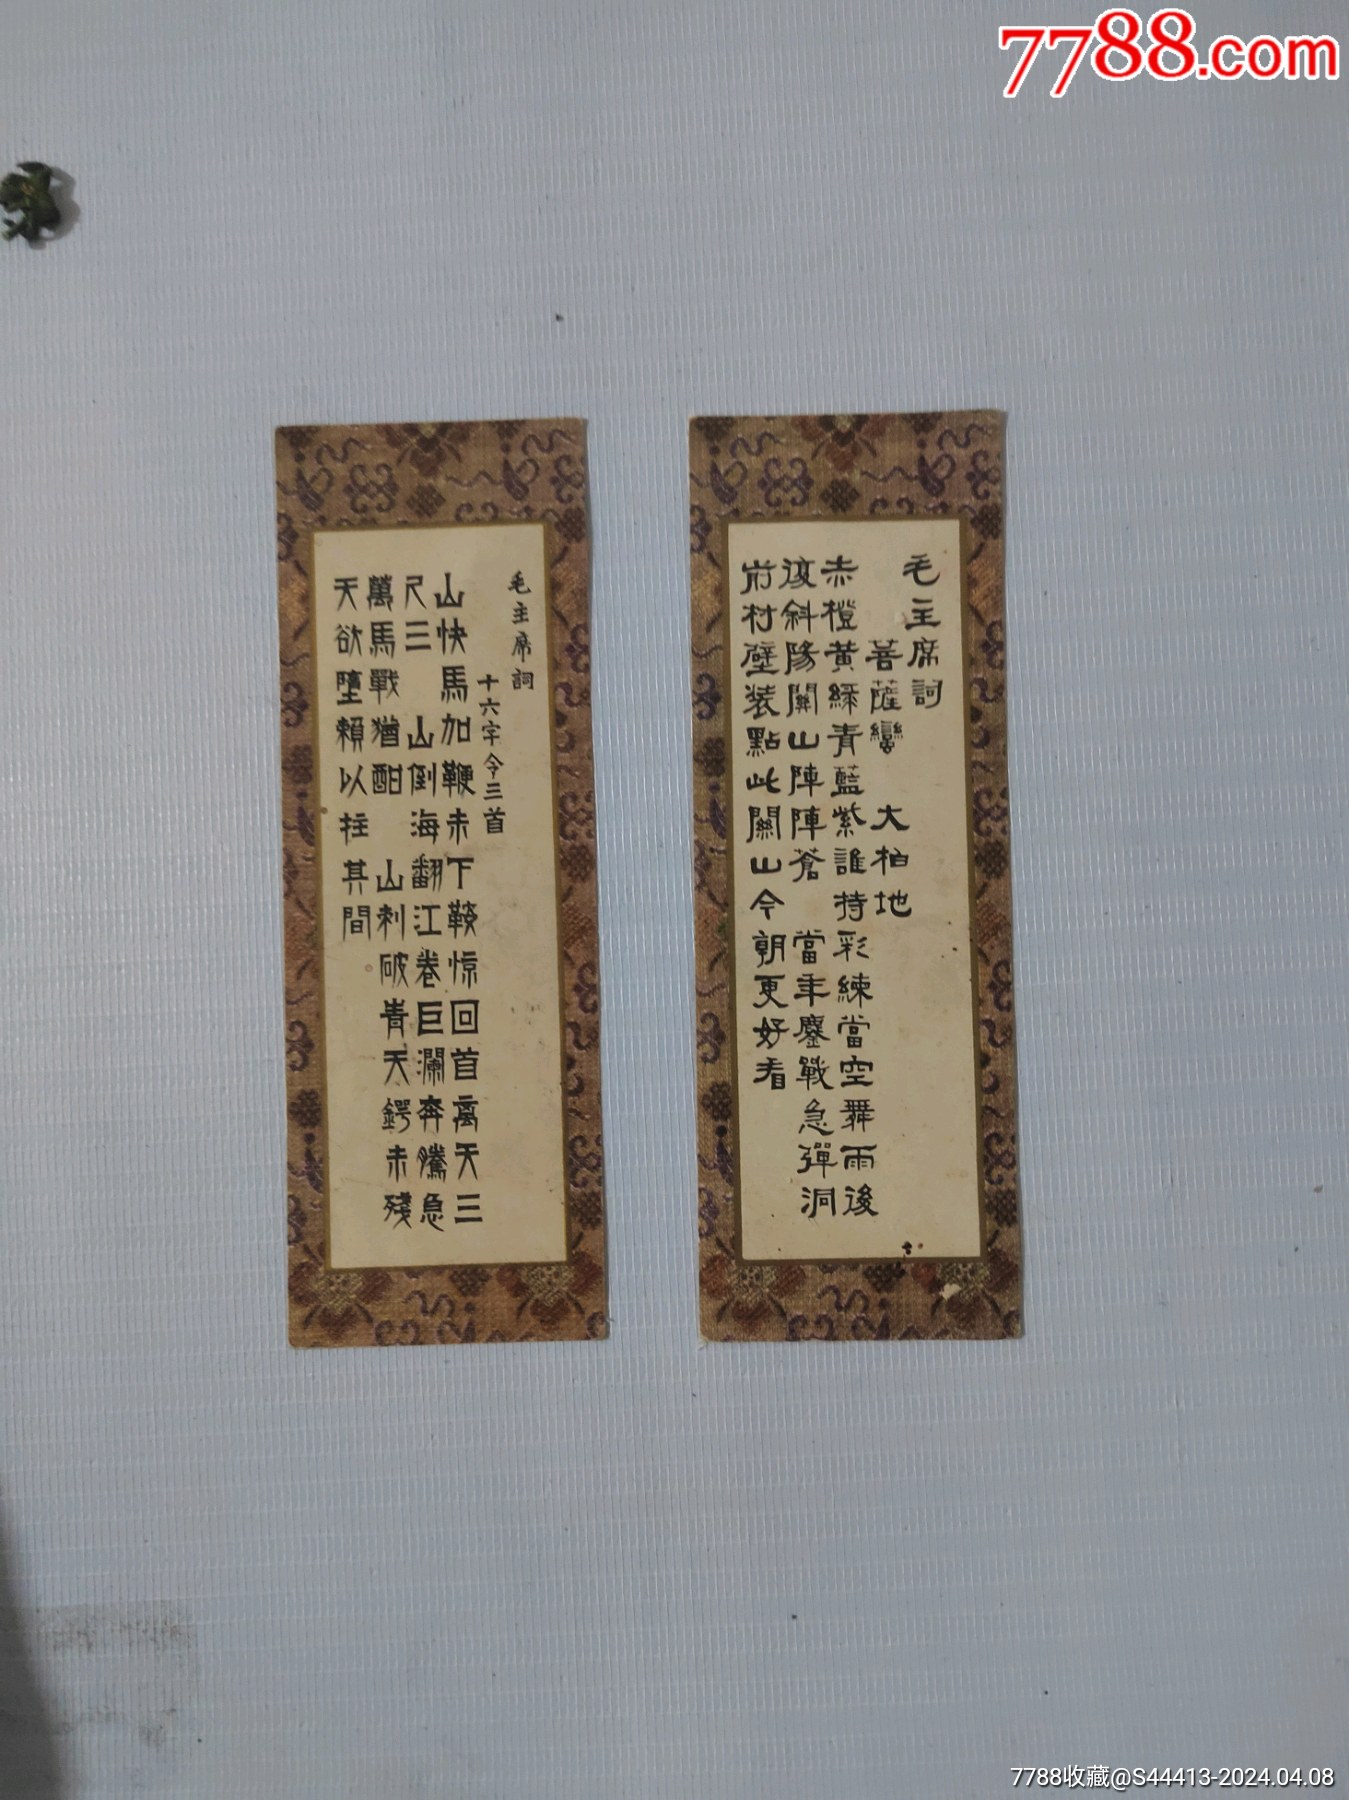 7788.com
毛主席詞
菩薩蠻 大柏地
赤橙黄綠青藍紫誰持彩練當空舞雨後
復斜陽關山陣陣蒼 當年鏖戰急彈洞
前村壁装點此關山今朝更好看
毛主席詞
十六字令三首
山快馬加鞭未下鞍惊回首离天三
尺三 山倒海翻江卷巨瀾奔騰急
萬馬戰猶酣 山刺破青天鍔未殘
天欲墮賴以拄其間
7788收藏@S44413-2024.04.08